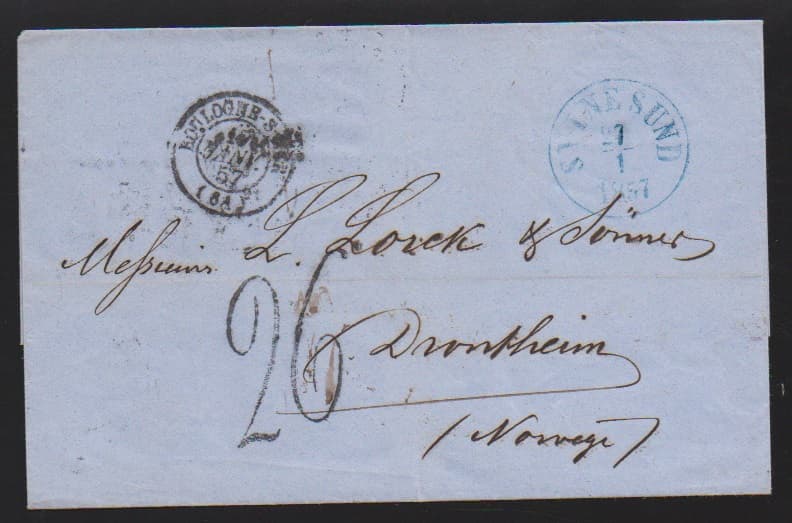 BOULOGNE-S-MER
JANV
57
(BA)
SVINESUND
7
1
1857
Messieurs L. Lorck & Sönner
26
Drontheim
(Norwege)